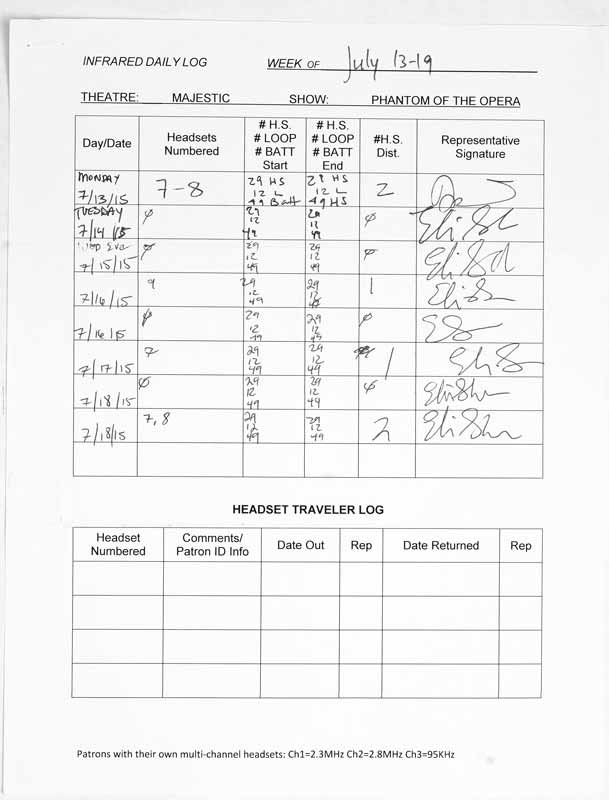 INFRARED DAILY LOG WEEK OF July 13-19
THEATRE: MAJESTIC SHOW: PHANTOM OF THE OPERA
Day/Date Headsets Numbered # H.S. # LOOP # BATT Start # H.S. # LOOP # BATT End #H.S. Dist. Representative Signature
MONDAY 7/13/15 7-8 29 HS 12 L 49 Batt 29 HS 12 L 49 HS 2
TUESDAY 7/14/15 φ 29 12 49 29 12 49 φ
Wed Eve 7/15/15 φ 29 12 49 29 12 49 φ
7/16/15 9 29 12 49 29 12 1
7/16/15 φ 29 12 49 29 12 φ
7/17/15 7 29 12 49 29 12 49 1
7/18/15 φ 29 12 49 29 12 49 φ
7/18/15 7,8 29 12 49 29 12 49 2
HEADSET TRAVELER LOG
Headset Numbered Comments/ Patron ID Info Date Out Rep Date Returned Rep
Patrons with their own multi-channel headsets: Ch1=2.3MHz Ch2=2.8MHz Ch3=95KHz